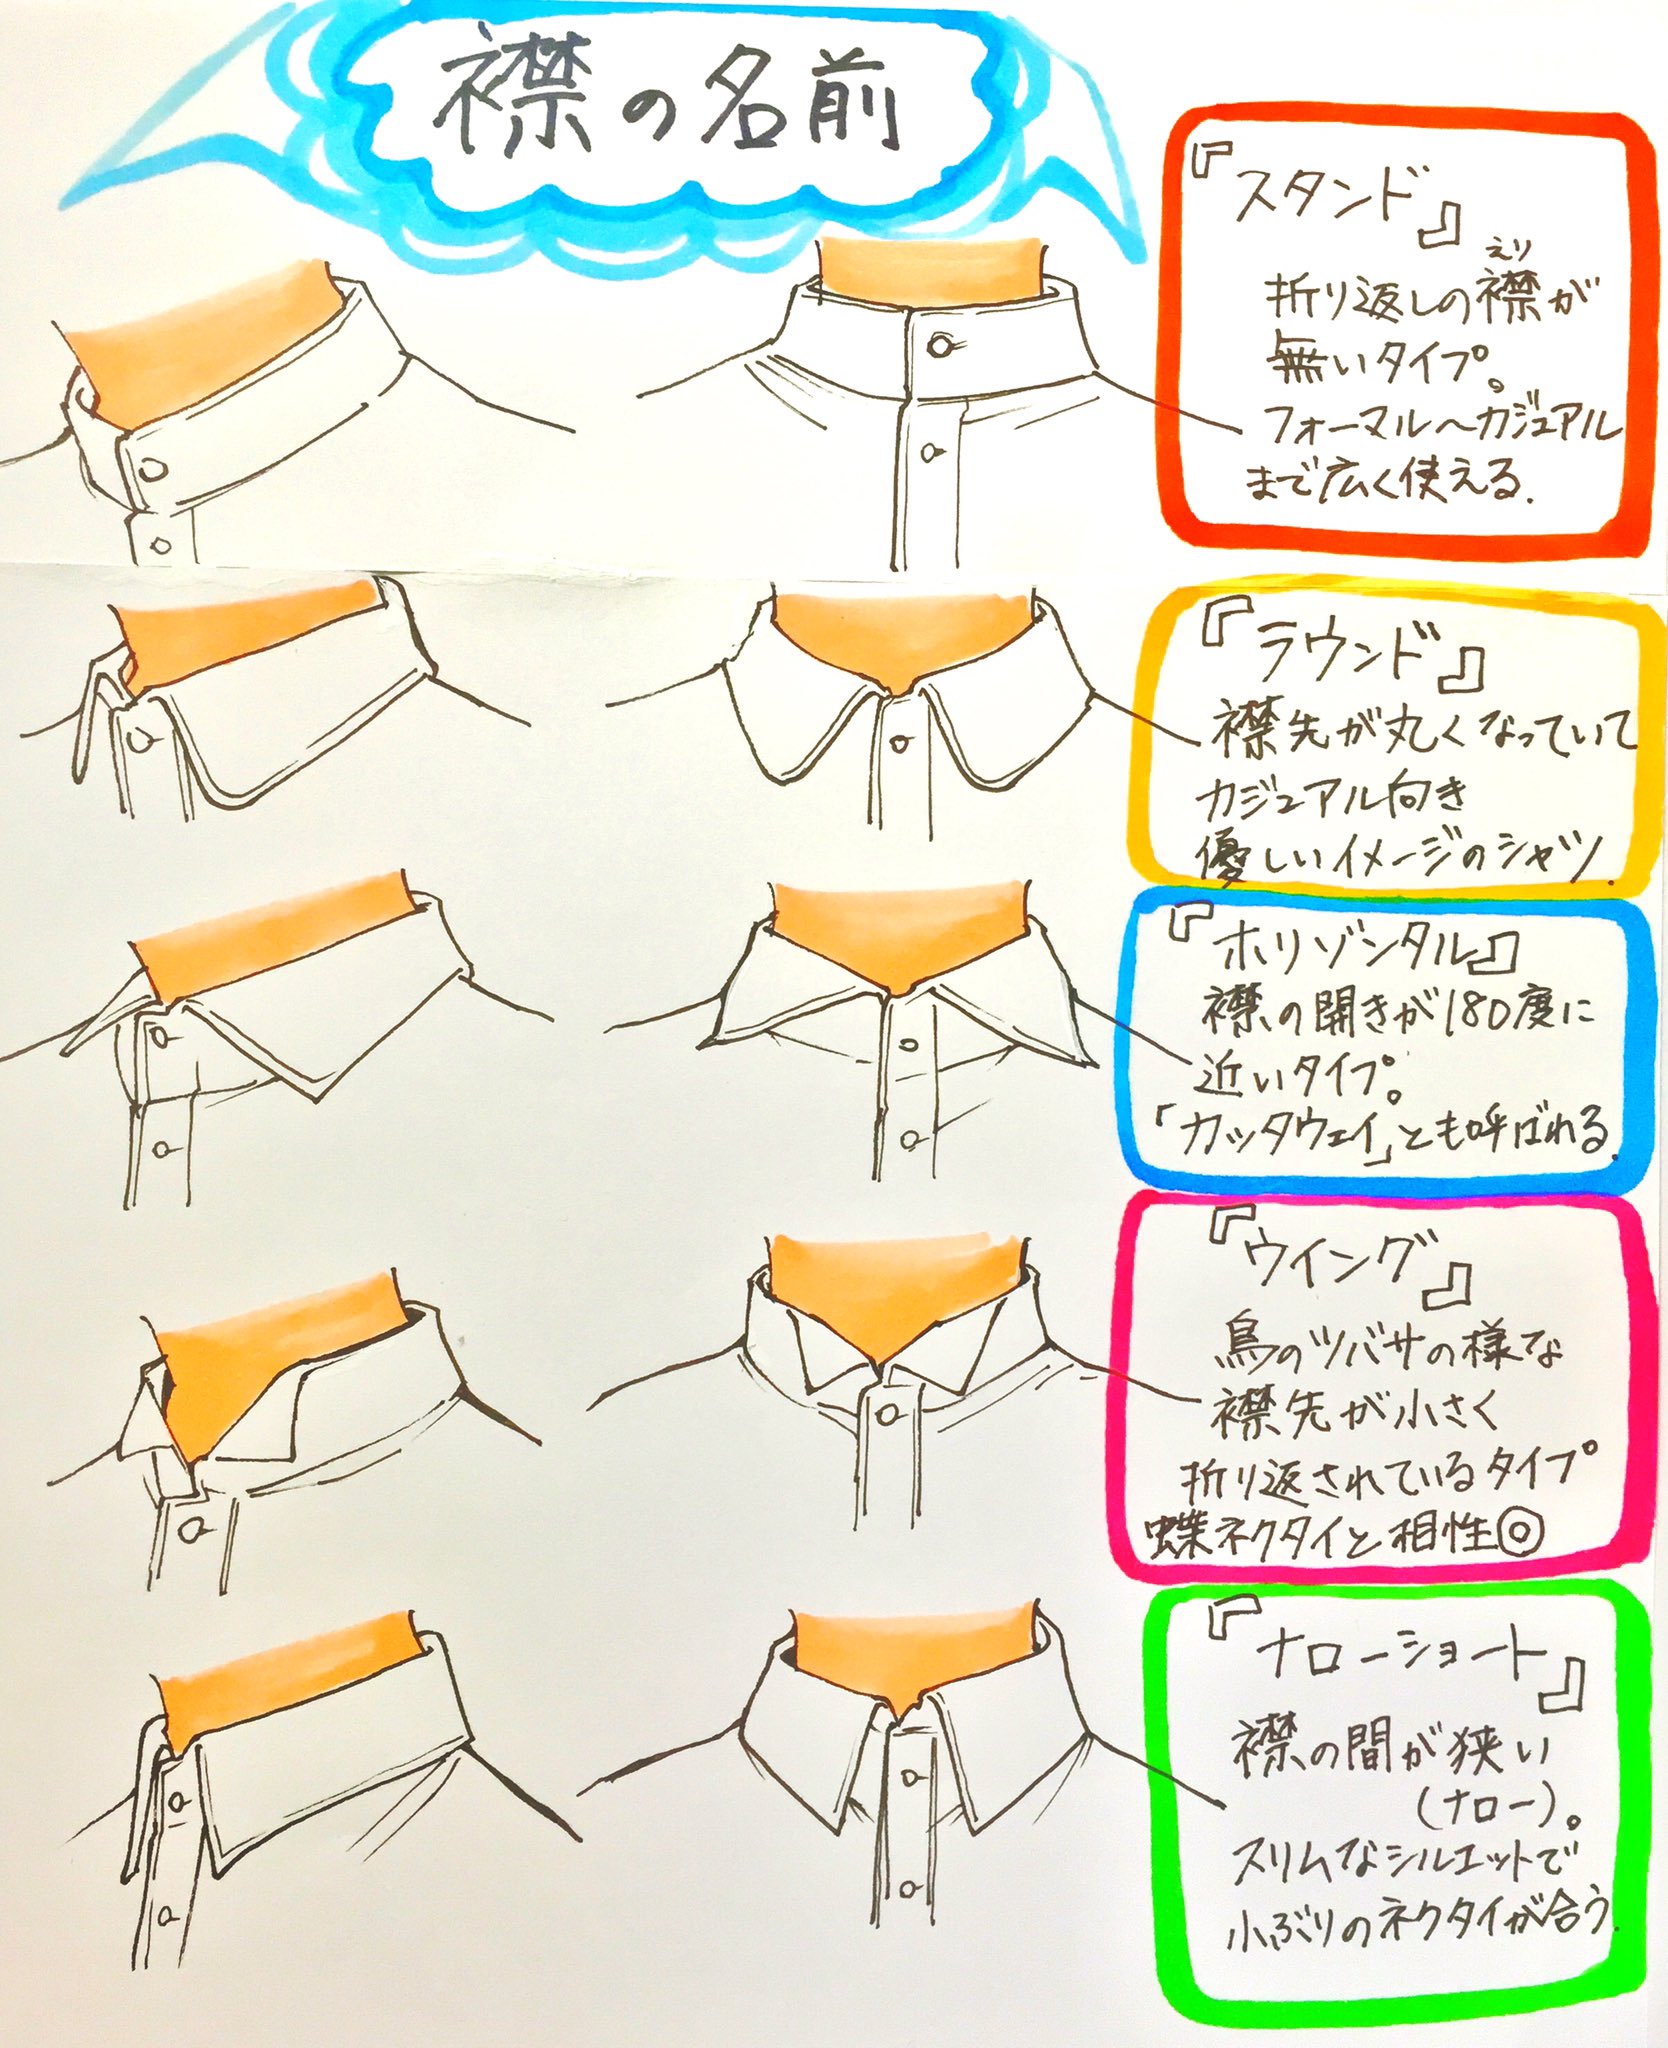 襟の名前
『スタンド』
えり
折り返しの襟が
無いタイプ。
フォーマル〜カジュアル
まで広く使える.
『ラウンド』
襟先が丸くなっていて
カジュアル向き
優しいイメージのシャツ.
『ホリゾンタル』
襟の開きが180度に
近いタイプ。
「カッタウェイ」とも呼ばれる.
『ウイング』
鳥のツバサの様な
襟先が小さく
折り返されているタイプ
蝶ネクタイと相性◎
『ナローショート』
襟の間が狭い
(ナロー)。
スリムなシルエットで
小ぶりのネクタイが合う.